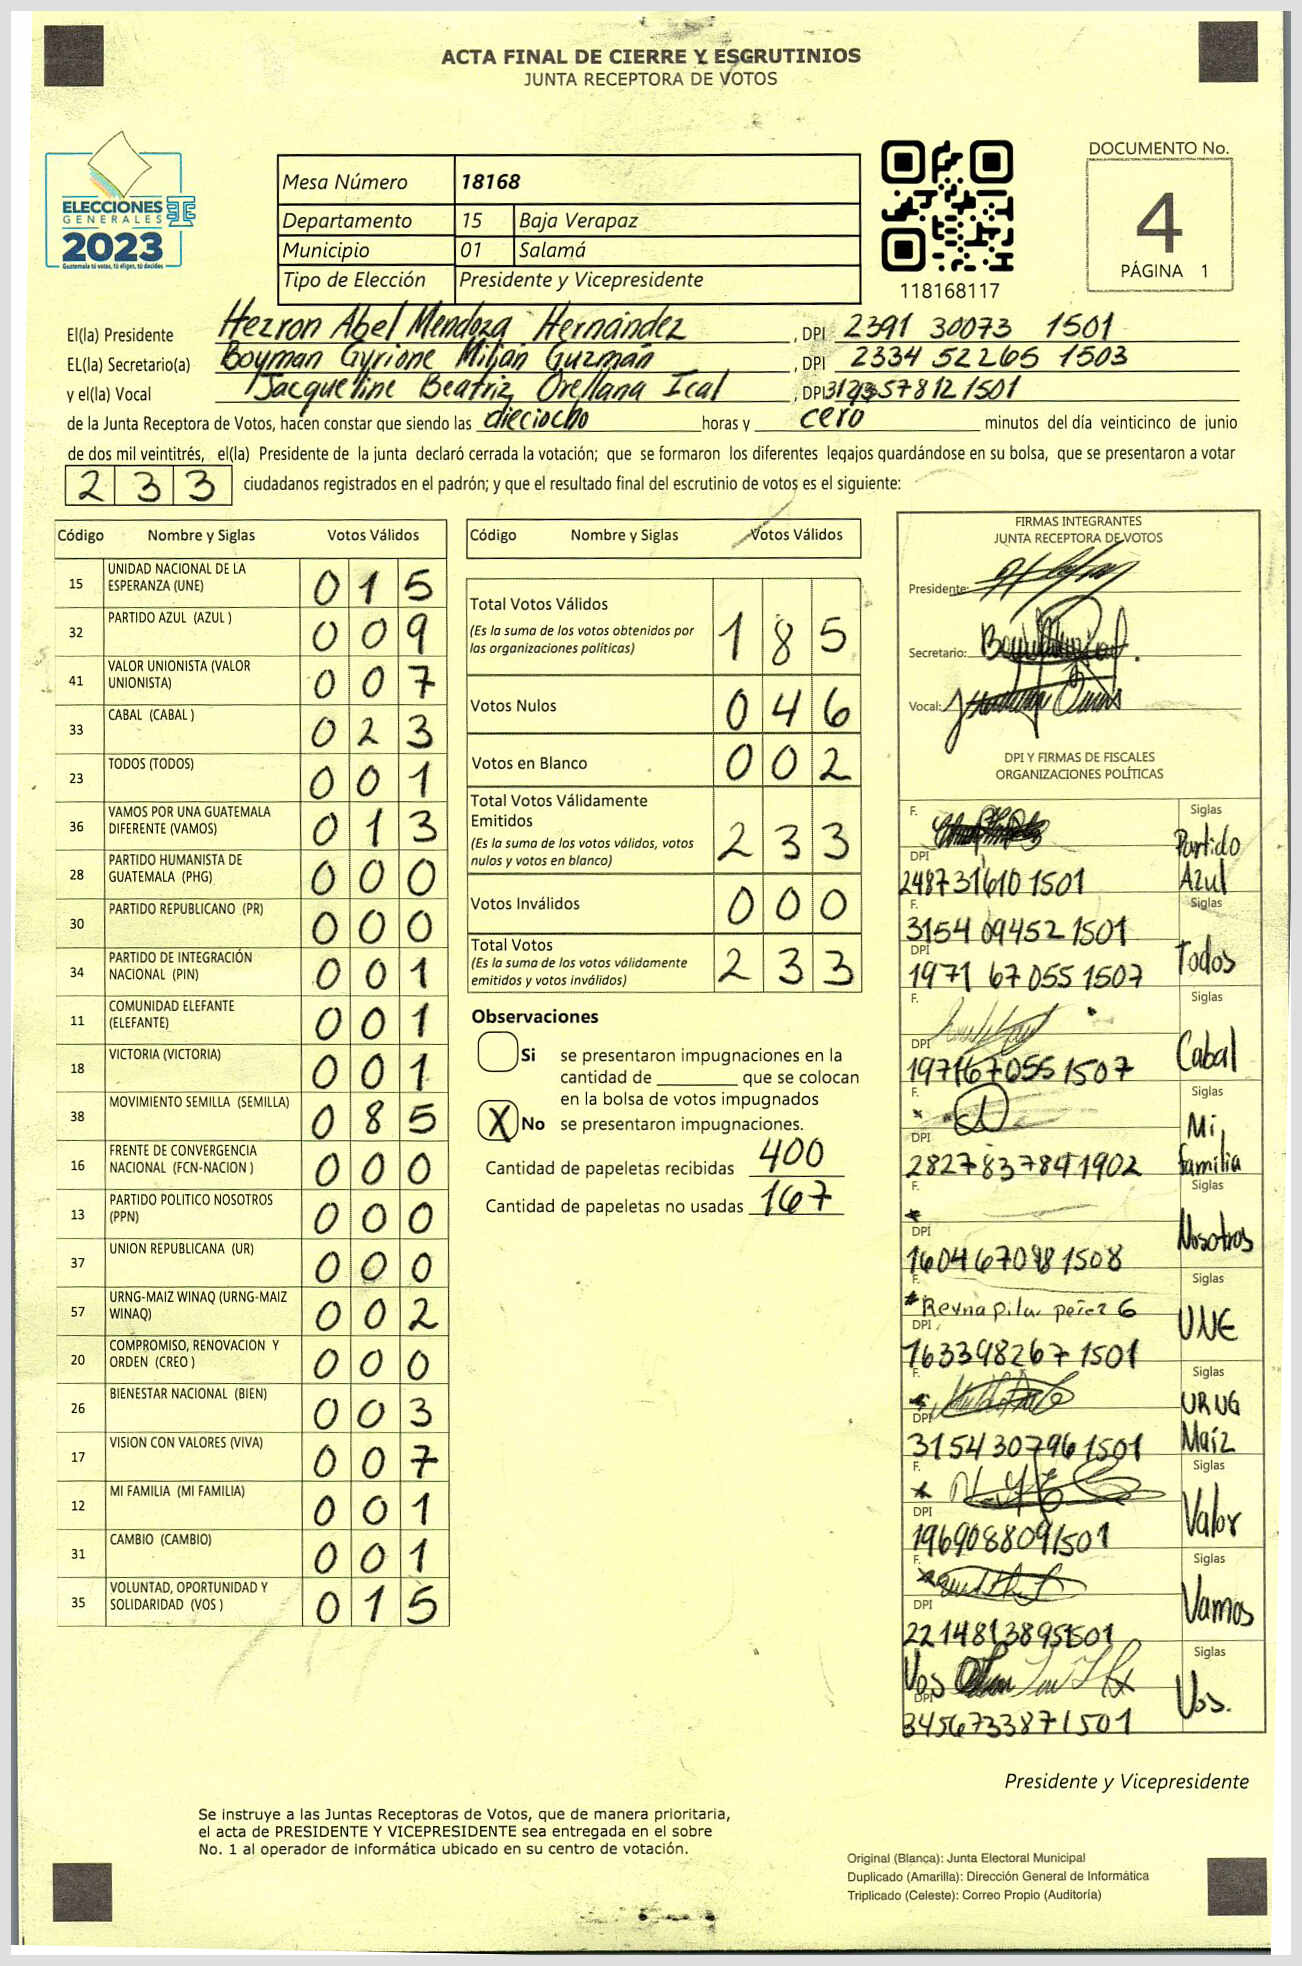 ACTA FINAL DE CIERRE Y ESCRUTINIOS
JUNTA RECEPTORA DE VOTOS
ELECCIONES
GENERALES
2023
Guatemala tú votas, tú eliges, tú decides
Mesa Número 18168
Departamento 15 Baja Verapaz
Municipio 01 Salamá
Tipo de Elección Presidente y Vicepresidente
118168117
DOCUMENTO No.
4
PÁGINA 1
El(la) Presidente Hezron Abel Mendoza Hernández , DPI 2391 30073 1501
EL(la) Secretario(a) Boyman Gyrione Milian Guzmán , DPI 2334 52265 1503
y el(la) Vocal Jacqueline Beatriz Orellana Ical , DPI
de la Junta Receptora de Votos, hacen constar que siendo las dieciocho horas y cero minutos del día veinticinco de junio
de dos mil veintitrés, el(la) Presidente de la junta declaró cerrada la votación; que se formaron los diferentes legajos guardándose en su bolsa, que se presentaron a votar
233 ciudadanos registrados en el padrón; y que el resultado final del escrutinio de votos es el siguiente:
Código Nombre y Siglas Votos Válidos
15 UNIDAD NACIONAL DE LA ESPERANZA (UNE) 015
32 PARTIDO AZUL (AZUL ) 009
41 VALOR UNIONISTA (VALOR UNIONISTA) 007
33 CABAL (CABAL ) 023
23 TODOS (TODOS) 001
36 VAMOS POR UNA GUATEMALA DIFERENTE (VAMOS) 013
28 PARTIDO HUMANISTA DE GUATEMALA (PHG) 000
30 PARTIDO REPUBLICANO (PR) 000
34 PARTIDO DE INTEGRACIÓN NACIONAL (PIN) 001
11 COMUNIDAD ELEFANTE (ELEFANTE) 001
18 VICTORIA (VICTORIA) 001
38 MOVIMIENTO SEMILLA (SEMILLA) 085
16 FRENTE DE CONVERGENCIA NACIONAL (FCN-NACION ) 000
13 PARTIDO POLITICO NOSOTROS (PPN) 000
37 UNION REPUBLICANA (UR) 000
57 URNG-MAIZ WINAQ (URNG-MAIZ WINAQ) 002
20 COMPROMISO, RENOVACION Y ORDEN (CREO ) 000
26 BIENESTAR NACIONAL (BIEN) 003
17 VISION CON VALORES (VIVA) 007
12 MI FAMILIA (MI FAMILIA) 001
31 CAMBIO (CAMBIO) 001
35 VOLUNTAD, OPORTUNIDAD Y SOLIDARIDAD (VOS ) 015
Código Nombre y Siglas Votos Válidos
Total Votos Válidos 185
(Es la suma de los votos obtenidos por
las organizaciones políticas)
Votos Nulos 046
Votos en Blanco 002
Total Votos Válidamente
Emitidos 233
(Es la suma de los votos válidos, votos
nulos y votos en blanco)
Votos Inválidos 000
Total Votos 233
(Es la suma de los votos válidamente
emitidos y votos inválidos)
Observaciones
Si se presentaron impugnaciones en la
cantidad de ________ que se colocan
en la bolsa de votos impugnados
X No se presentaron impugnaciones.
Cantidad de papeletas recibidas 400
Cantidad de papeletas no usadas 167
FIRMAS INTEGRANTES
JUNTA RECEPTORA DE VOTOS
Presidente:
Secretario:
Vocal:
DPI Y FIRMAS DE FISCALES
ORGANIZACIONES POLÍTICAS
F. Siglas
DPI Partido
248731610 1501 Azul
F. Siglas
3154 09452 1501
DPI Todos
1971 67055 1507
F. Siglas
DPI Cabal
197167055 1507
F. Siglas
DPI Mi
282783784 1902 familia
F. Siglas
DPI Nosotros
160467098 1508
F. Siglas
Reyna pilar perez G
DPI UNE
163398267 1501
F. Siglas
DPI URNG
3154307961501 Maíz
F. Siglas
DPI Valor
1969088091501
F. Siglas
DPI Vamos
2214813895 1501
Siglas
Vos
DPI Vos.
3456733871501
Presidente y Vicepresidente
Se instruye a las Juntas Receptoras de Votos, que de manera prioritaria,
el acta de PRESIDENTE Y VICEPRESIDENTE sea entregada en el sobre
No. 1 al operador de informática ubicado en su centro de votación.
Original (Blanca): Junta Electoral Municipal
Duplicado (Amarilla): Dirección General de Informática
Triplicado (Celeste): Correo Propio (Auditoría)